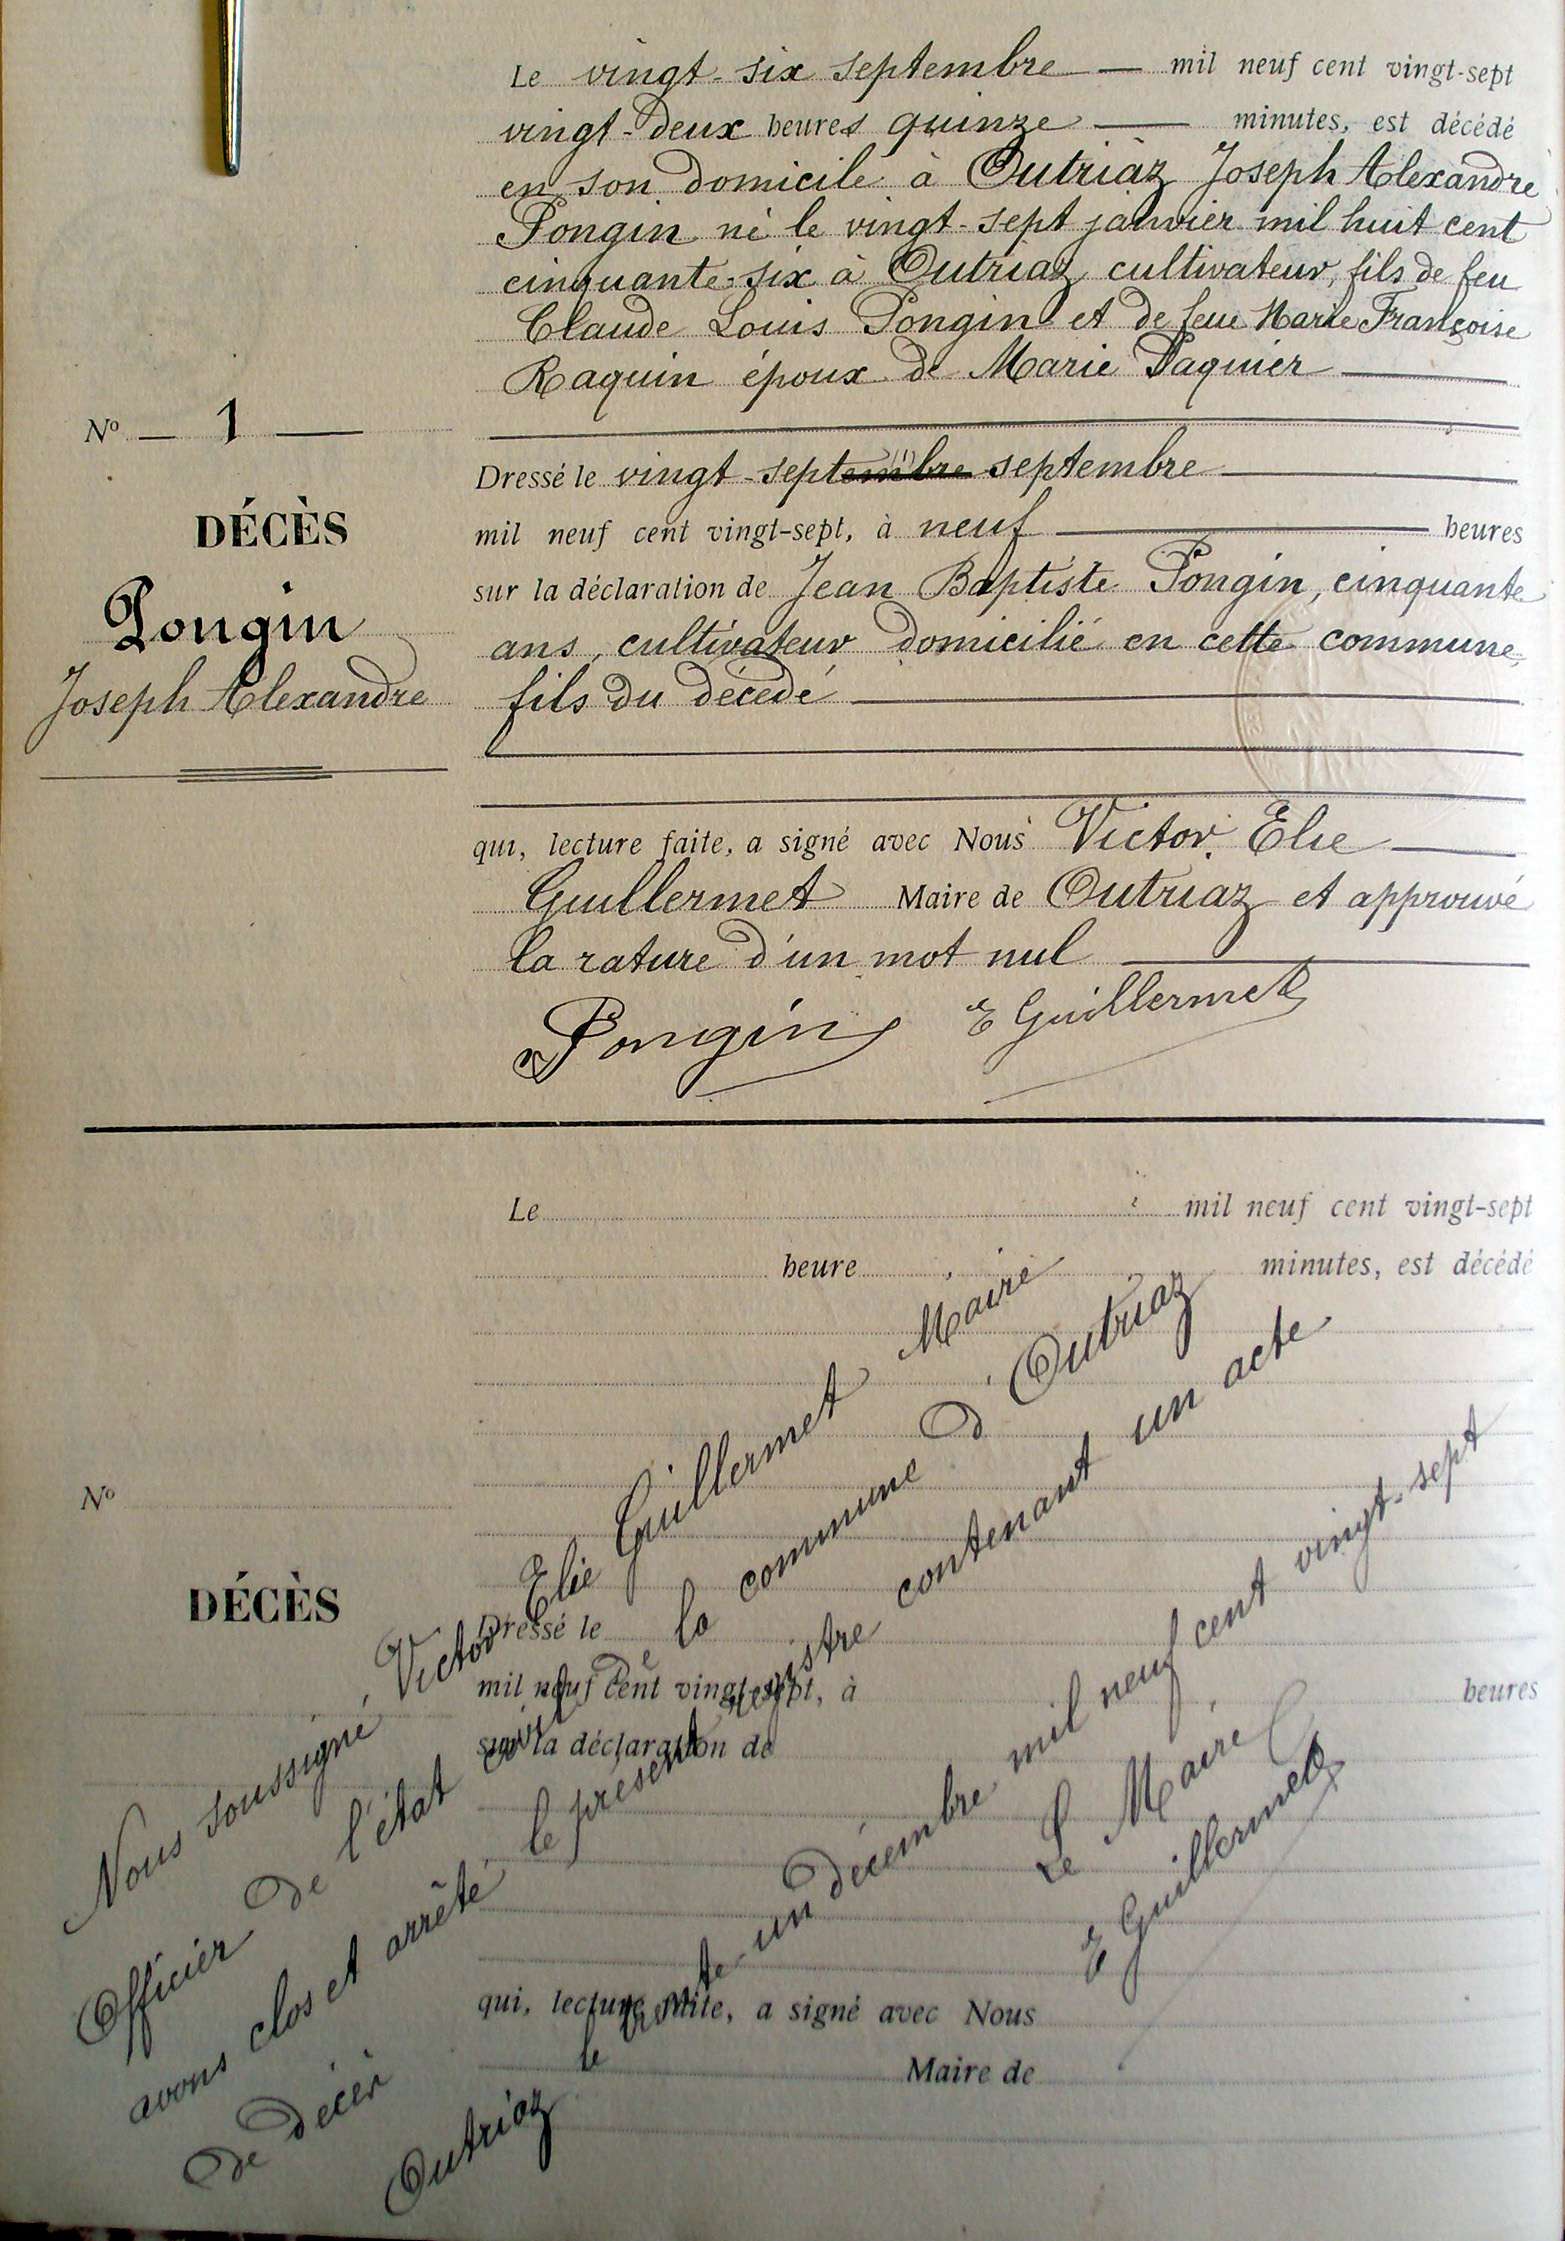 Le vingt-six septembre — mil neuf cent vingt-sept
vingt-deux heures quinze — minutes, est décédé
en son domicile à Outriaz Joseph Alexandre
Pongin né le vingt-sept janvier mil huit cent
cinquante-six à Outriaz, cultivateur, fils de feu
Claude Louis Pongin et de feue Marie Françoise
Raquin époux de Marie Paquier
Nº 1
DÉCÈS
Pongin
Joseph Alexandre
Dressé le vingt-septembre septembre
mil neuf cent vingt-sept, à neuf heures
sur la déclaration de Jean Baptiste Pongin, cinquante
ans, cultivateur domicilié en cette commune,
fils du décédé
qui, lecture faite, a signé avec Nous Victor Elie
Guillermet Maire de Outriaz et approuvé
la rature d'un mot nul
Pongin E Guillermet
Le mil neuf cent vingt-sept
heure minutes, est décédé
Nº
DÉCÈS
Dressé le
mil neuf cent vingt-sept, à heures
sur la déclaration de
qui, lecture faite, a signé avec Nous
Maire de
Nous soussigné Victor Elie Guillermet Maire
Officier de l'état civil de la commune d'Outriaz
avons clos et arrêté le présent registre contenant un acte
de décès
Outriaz le trente-un décembre mil neuf cent vingt-sept
Le Maire
E Guillermet